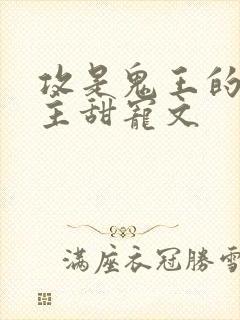 攻是鬼王的
主甜寵文
滿座衣冠勝雪